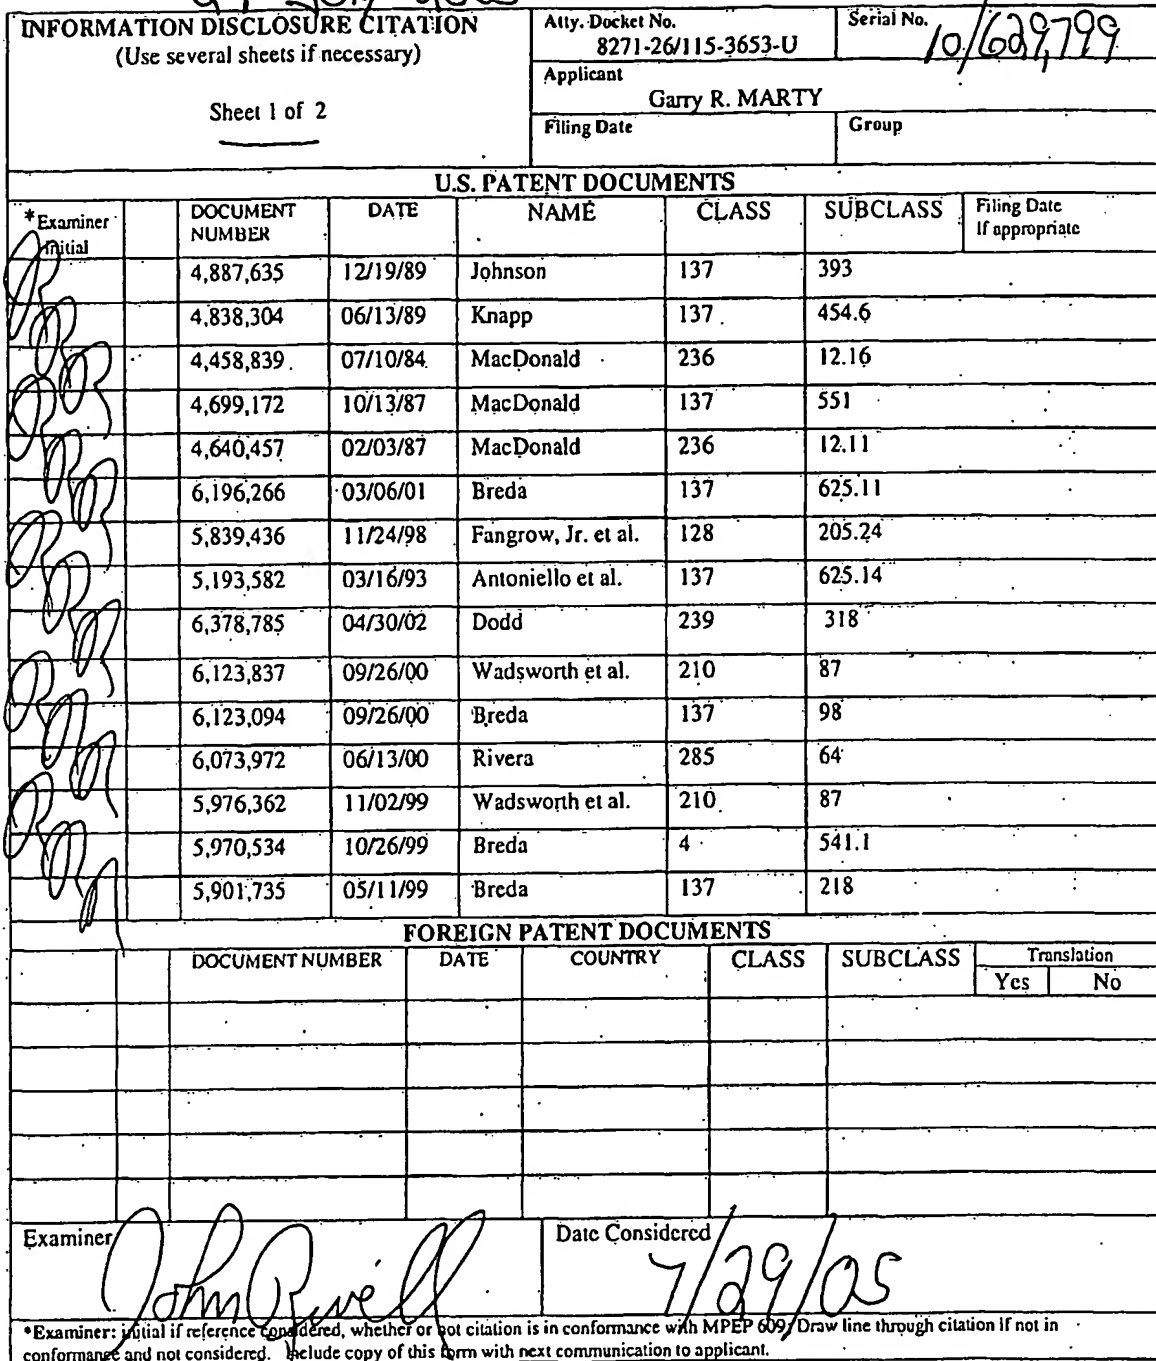 INFORMATION DISCLOSURE CITATION
(Use several sheets if necessary)
Sheet 1 of 2
Atty. Docket No.
8271-26/115-3653-U
Serial No.
10/629,799
Applicant
Garry R. MARTY
Filing Date
Group
U.S. PATENT DOCUMENTS
*Examiner Initial DOCUMENT NUMBER DATE NAME CLASS SUBCLASS Filing Date If appropriate
4,887,635 12/19/89 Johnson 137 393
4,838,304 06/13/89 Knapp 137 454.6
4,458,839 07/10/84 MacDonald 236 12.16
4,699,172 10/13/87 MacDonald 137 551
4,640,457 02/03/87 MacDonald 236 12.11
6,196,266 03/06/01 Breda 137 625.11
5,839,436 11/24/98 Fangrow, Jr. et al. 128 205.24
5,193,582 03/16/93 Antoniello et al. 137 625.14
6,378,785 04/30/02 Dodd 239 318
6,123,837 09/26/00 Wadsworth et al. 210 87
6,123,094 09/26/00 Breda 137 98
6,073,972 06/13/00 Rivera 285 64
5,976,362 11/02/99 Wadsworth et al. 210 87
5,970,534 10/26/99 Breda 4 541.1
5,901,735 05/11/99 Breda 137 218
FOREIGN PATENT DOCUMENTS
DOCUMENT NUMBER DATE COUNTRY CLASS SUBCLASS Translation
Yes No
Examiner John Rivell
Date Considered 7/29/05
*Examiner: initial if reference considered, whether or not citation is in conformance with MPEP 609/ Draw line through citation if not in
conformance and not considered. Include copy of this form with next communication to applicant.